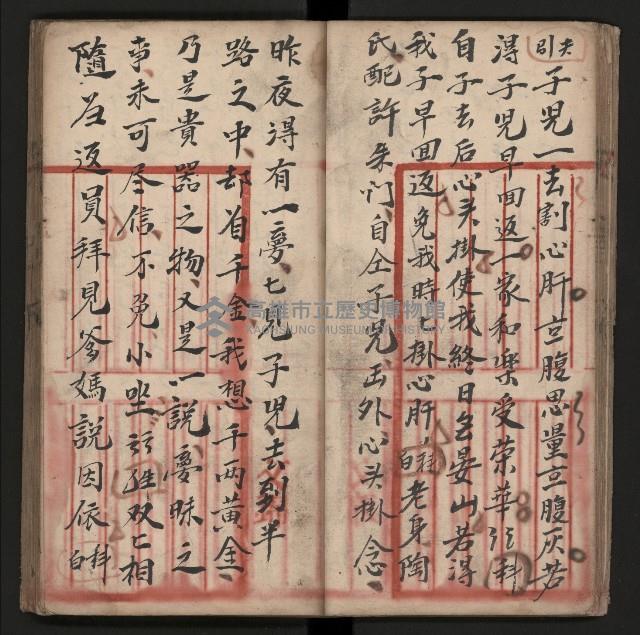 夫引子児一去割心肝苦腹思量苦腹灰若
淂子児早回返一家和楽受荣華
自子去后心头掛使我終日
若得
我子早回返免我時掛心肝 白 老身陶
氏配許朱门自仝子児出外心头掛念
昨夜得有一夢七見子児去到半
路之中却有千金我想千两黄金
乃是貴器之物又是一説夢昧之
事未可尽信不免小坐 双亡相
隨 返員拜見爹媽説因依 白
高雄市立歷史博物館
KAOHSIUNG MUSEUM OF HISTORY